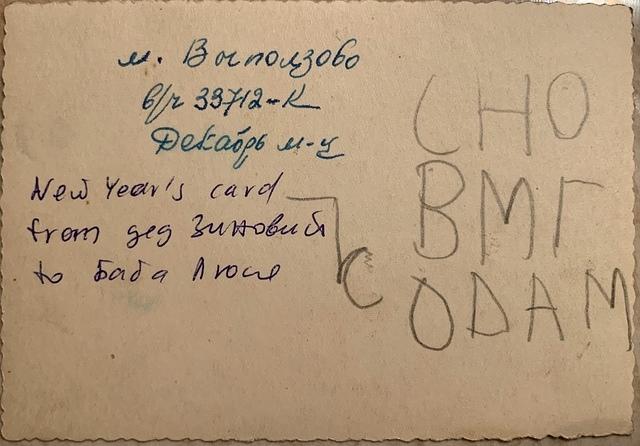 м. Выползово
в/ч 33712-К
Декабрь м-ц
New Year's card
from дед Зиновий
to баба Люсе
СНО
ВМГ
С ОДАМ